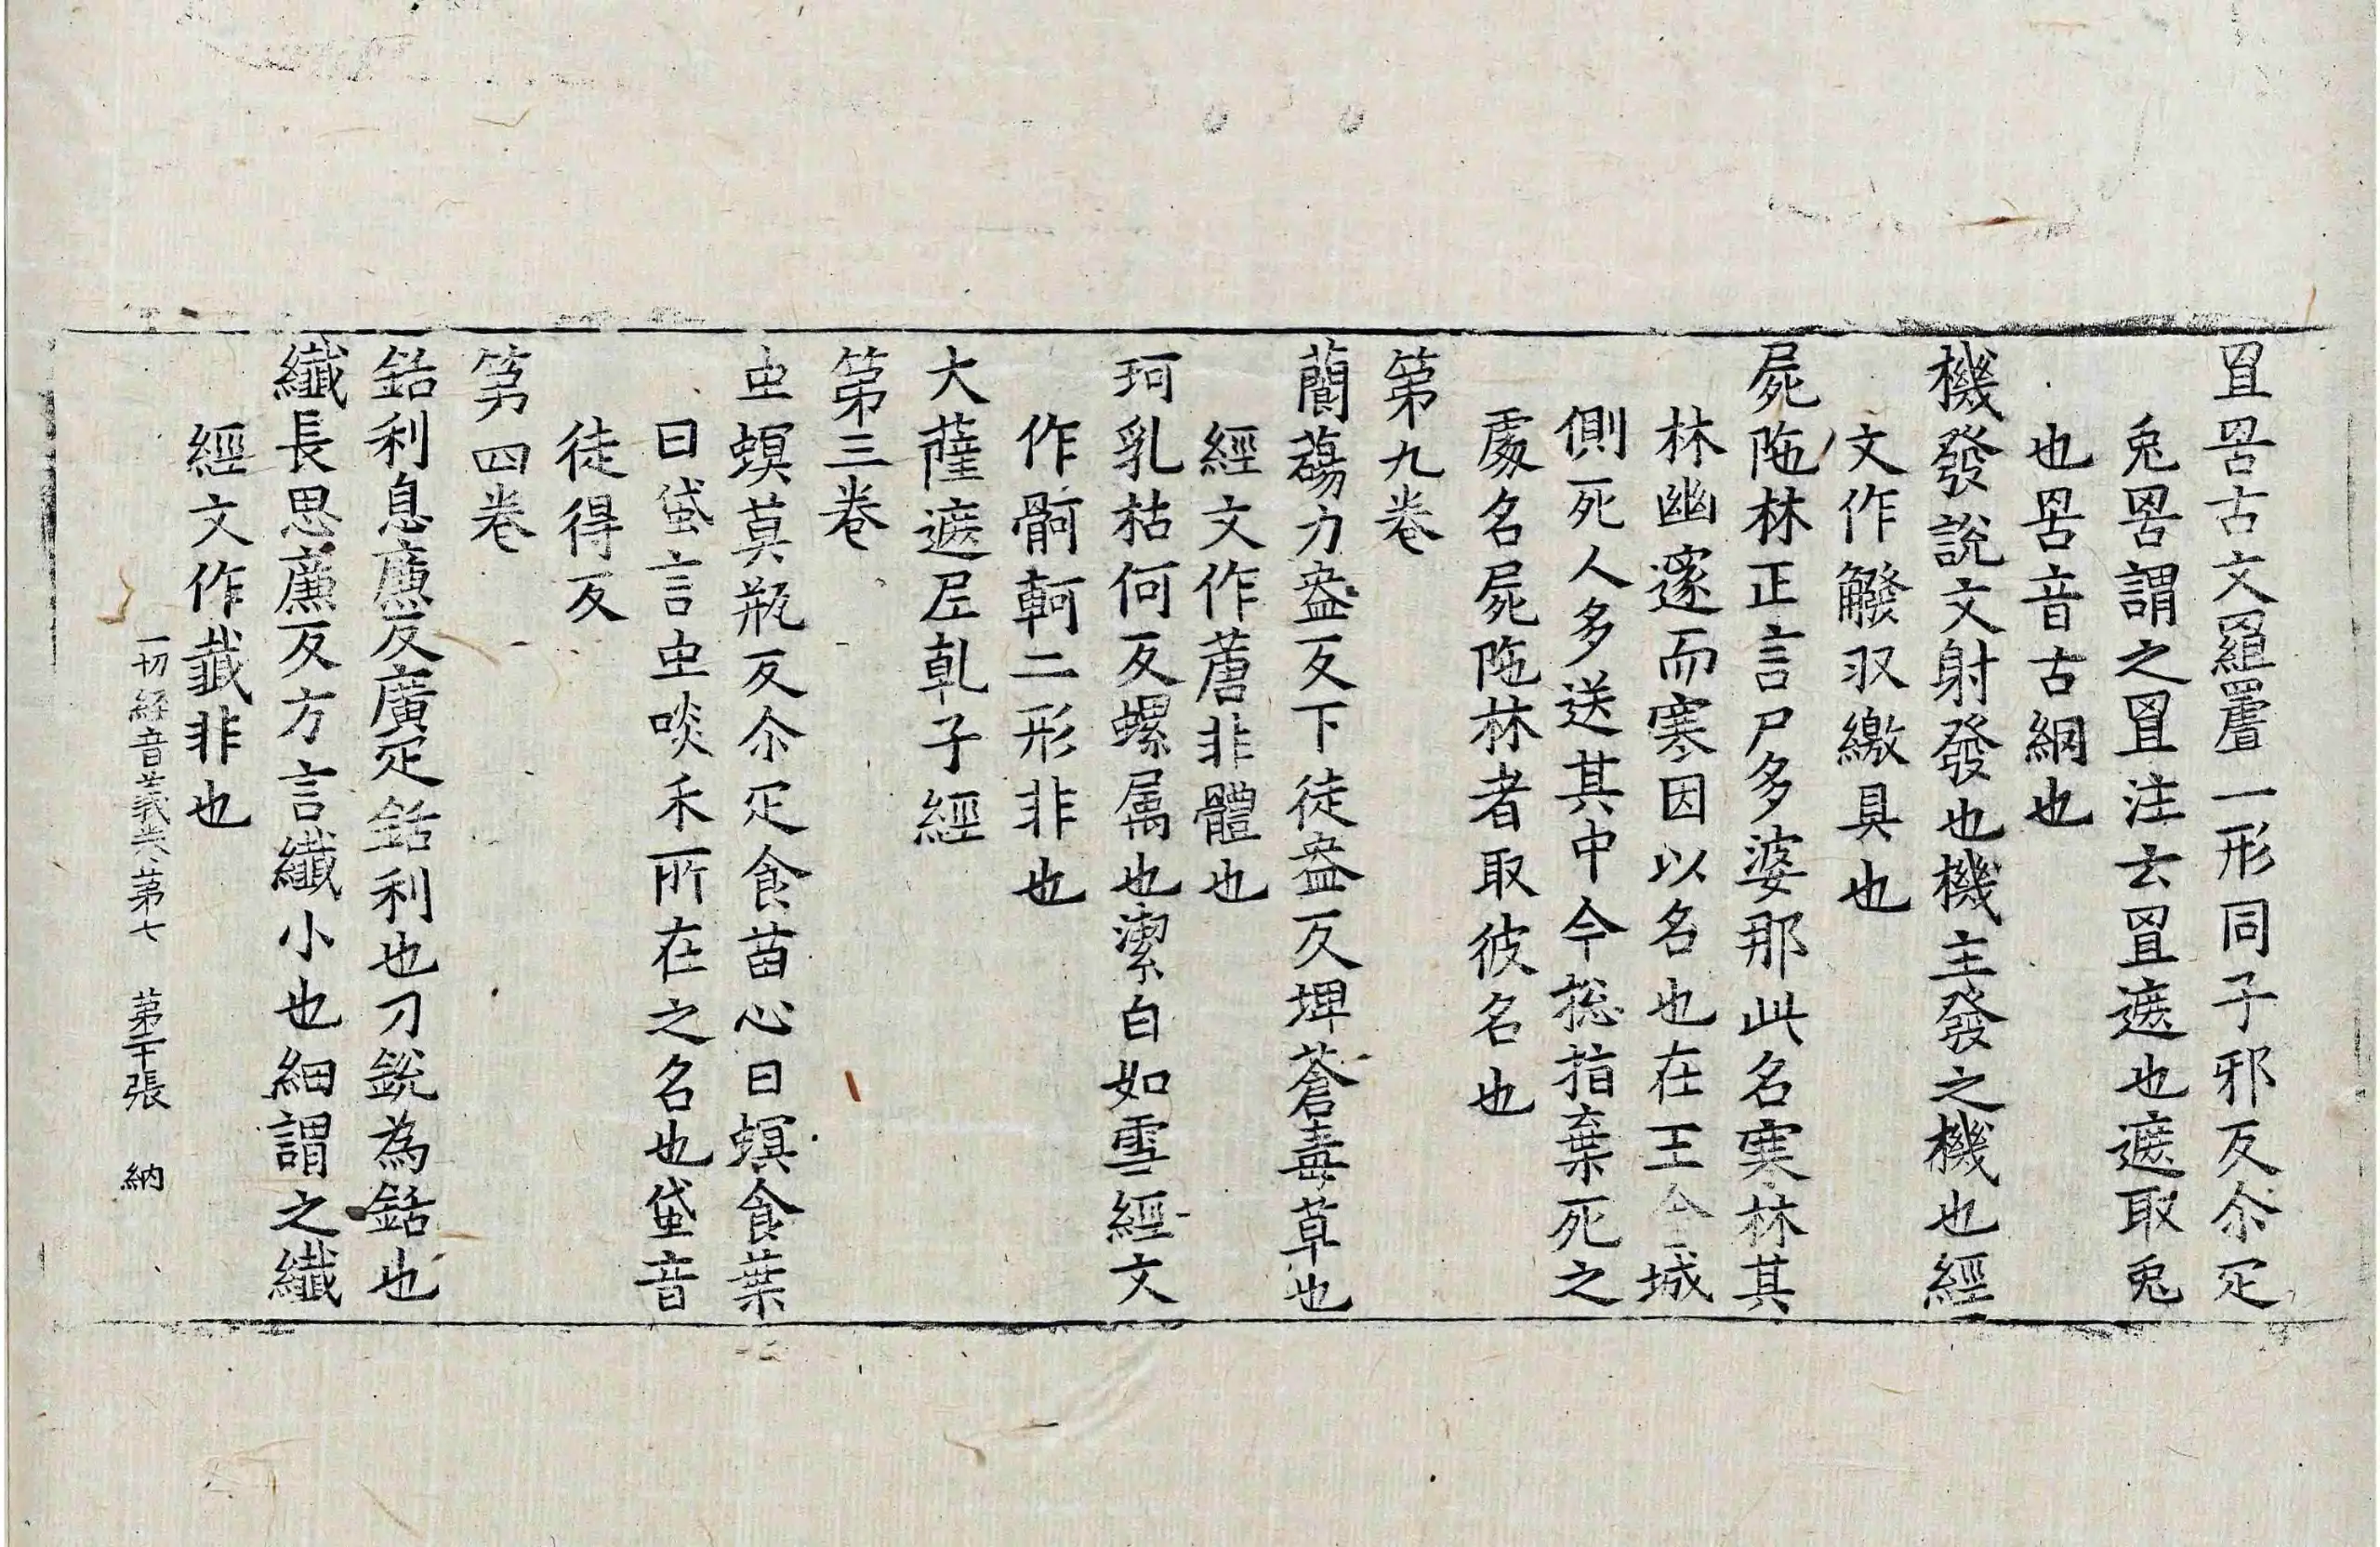 罝罟古文𦋺罿一形同子邪反尒疋
兔罟謂之罝注云罝遮也遮取兔
也罟音古網也
機發說文射發也機主發之機也經
文作䥽収繳具也
屍陁林正言尸多婆那此名寒林其
林幽邃而寒因以名也在王今城
側死人多送其中今捴指棄死之
處名屍陁林者取彼名也
第九卷
蘭蕩力盎反下徒盎反埤蒼毒草也
經文作蓎非體也
珂乳枯何反螺属也潔白如雪經文
作𩩲軻二形非也
大薩遮尼乹子經
第三卷
虫螟莫瓶反尒疋食苗心曰螟食葉
曰蟘言虫啖禾所在之名也蟘音
徒得反
第四卷
銛利息廉反廣疋銛利也刀銳為銛也
纖長思廉反方言纖小也細謂之纖
經文作韱非也
一切經音義卷第七 第二十張 納